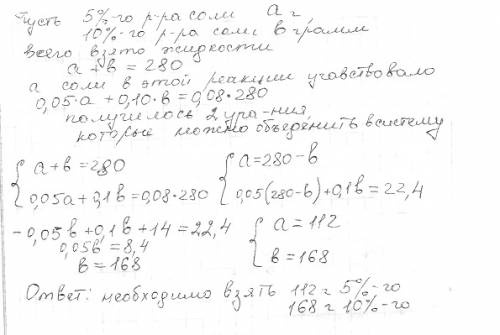 Пусть 5%-го р-ра соли а г
10%-го р-ра соли в грамм
всего взято жидкости
а + в = 280
а соли в этой реакции учавствовало
0,05·а + 0,10·в = 0,08·280
получилось 2 ура-ния
которые можно объеденить в систему
{ а+в = 280 { а = 280-в
0,05а + 0,1в = 0,08·280 0,05(280-в)+0,1в = 22,4
-0,05в + 0,1в + 14 = 22,4 { а = 112
0,05в = 8,4
в = 168 в = 168
Ответ: необходимо взять 112 г 5%-го
168 г 10%-го